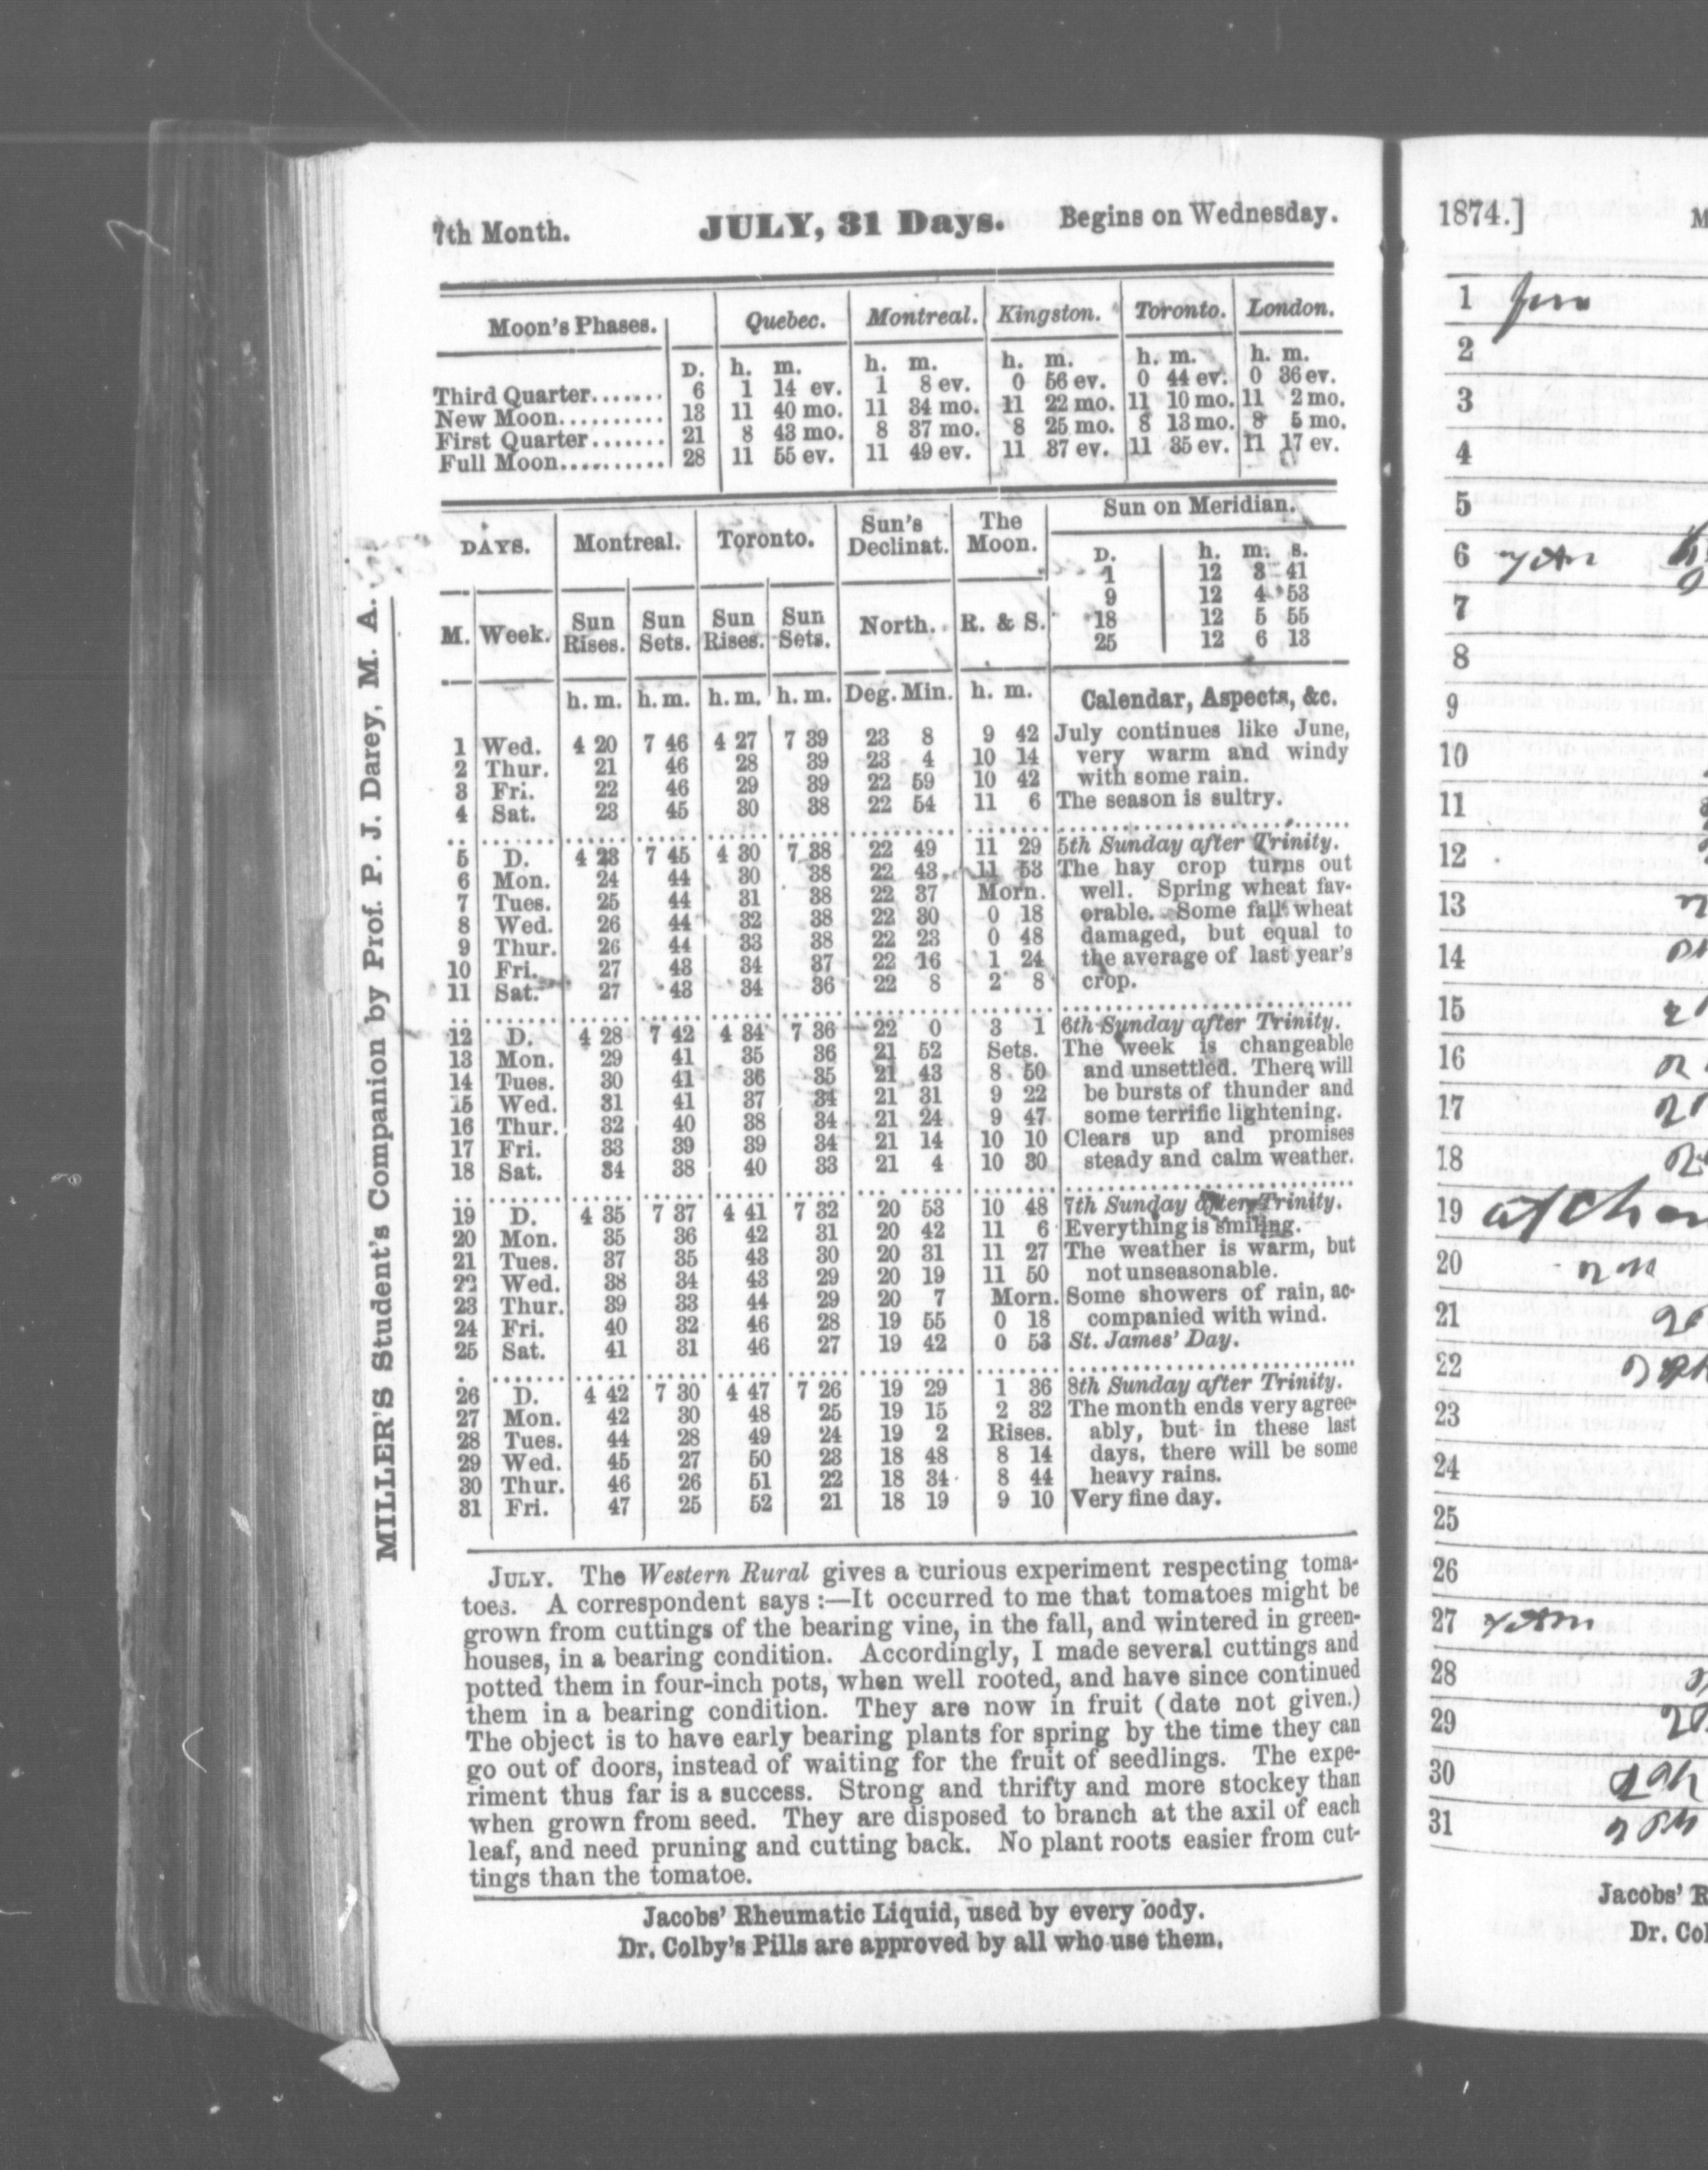 7th Month. JULY, 31 Days. Begins on Wednesday.
Moon's Phases. Quebec. Montreal. Kingston. Toronto. London.
D. h. m. h. m. h. m. h. m. h. m.
Third Quarter....... 6 1 14 ev. 1 8 ev. 0 56 ev. 0 44 ev. 0 36 ev.
New Moon.......... 13 11 40 mo. 11 34 mo. 11 22 mo. 11 10 mo. 11 2 mo.
First Quarter....... 21 8 43 mo. 8 37 mo. 8 25 mo. 8 13 mo. 8 5 mo.
Full Moon.......... 28 11 55 ev. 11 49 ev. 11 37 ev. 11 35 ev. 11 17 ev.
DAYS. Montreal. Toronto. Sun's Declinat. The Moon. Sun on Meridian.
D. h. m. s.
1 12 3 41
9 12 4 53
18 12 5 55
25 12 6 13
M. Week. Sun Rises. Sun Sets. Sun Rises. Sun Sets. North. R. & S.
h. m. h. m. h. m. h. m. Deg. Min. h. m. Calendar, Aspects, &c.
1 Wed. 4 20 7 46 4 27 7 39 23 8 9 42 July continues like June,
2 Thur. 21 46 28 39 23 4 10 14 very warm and windy
3 Fri. 22 46 29 39 22 59 10 42 with some rain.
4 Sat. 23 45 30 38 22 54 11 6 The season is sultry.
5 D. 4 23 7 45 4 30 7 38 22 49 11 29 5th Sunday after Trinity.
6 Mon. 24 44 30 38 22 43 11 53 The hay crop turns out
7 Tues. 25 44 31 38 22 37 Morn. well. Spring wheat fav-
8 Wed. 26 44 32 38 22 30 0 18 orable. Some fall wheat
9 Thur. 26 44 33 38 22 23 0 48 damaged, but equal to
10 Fri. 27 43 34 37 22 16 1 24 the average of last year's
11 Sat. 27 43 34 36 22 8 2 8 crop.
12 D. 4 28 7 42 4 34 7 36 22 0 3 1 6th Sunday after Trinity.
13 Mon. 29 41 35 36 21 52 Sets. The week is changeable
14 Tues. 30 41 36 35 21 43 8 50 and unsettled. There will
15 Wed. 31 41 37 34 21 31 9 22 be bursts of thunder and
16 Thur. 32 40 38 34 21 24 9 47 some terrific lightening.
17 Fri. 33 39 39 34 21 14 10 10 Clears up and promises
18 Sat. 34 38 40 33 21 4 10 30 steady and calm weather.
19 D. 4 35 7 37 4 41 7 32 20 53 10 48 7th Sunday after Trinity.
20 Mon. 35 36 42 31 20 42 11 6 Everything is smiling.
21 Tues. 37 35 43 30 20 31 11 27 The weather is warm, but
22 Wed. 38 34 43 29 20 19 11 50 not unseasonable.
23 Thur. 39 33 44 29 20 7 Morn. Some showers of rain, ac-
24 Fri. 40 32 46 28 19 55 0 18 companied with wind.
25 Sat. 41 31 46 27 19 42 0 53 St. James' Day.
26 D. 4 42 7 30 4 47 7 26 19 29 1 36 8th Sunday after Trinity.
27 Mon. 42 30 48 25 19 15 2 32 The month ends very agree-
28 Tues. 44 28 49 24 19 2 Rises. ably, but in these last
29 Wed. 45 27 50 23 18 48 8 14 days, there will be some
30 Thur. 46 26 51 22 18 34 8 44 heavy rains.
31 Fri. 47 25 52 21 18 19 9 10 Very fine day.
MILLER'S Student's Companion by Prof. P. J. Darey, M. A.
JULY. The Western Rural gives a curious experiment respecting toma-
toes. A correspondent says :—It occurred to me that tomatoes might be
grown from cuttings of the bearing vine, in the fall, and wintered in green-
houses, in a bearing condition. Accordingly, I made several cuttings and
potted them in four-inch pots, when well rooted, and have since continued
them in a bearing condition. They are now in fruit (date not given.)
The object is to have early bearing plants for spring by the time they can
go out of doors, instead of waiting for the fruit of seedlings. The expe-
riment thus far is a success. Strong and thrifty and more stockey than
when grown from seed. They are disposed to branch at the axil of each
leaf, and need pruning and cutting back. No plant roots easier from cut-
tings than the tomatoe.
Jacobs' Rheumatic Liquid, used by every body.
Dr. Colby's Pills are approved by all who use them.
1874.] M
1
2
3
4
5
6
7
8
9
10
11
12
13
14
15
16
17
18
19
20
21
22
23
24
25
26
27
28
29
30
31
Jacobs' R
Dr. Col